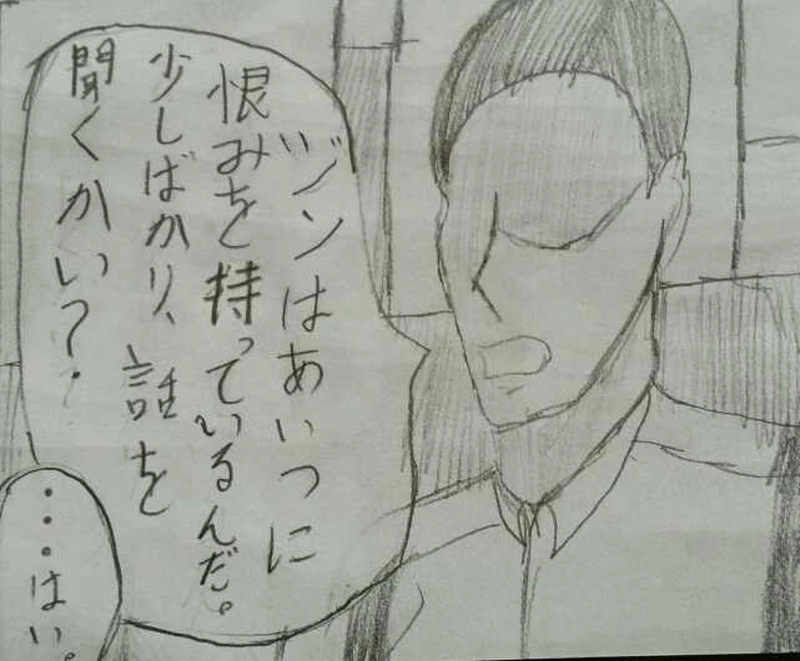 ジンはあいつに
恨みを持っているんだ。
少しばかり、話を
聞くかい?
・・・はい。